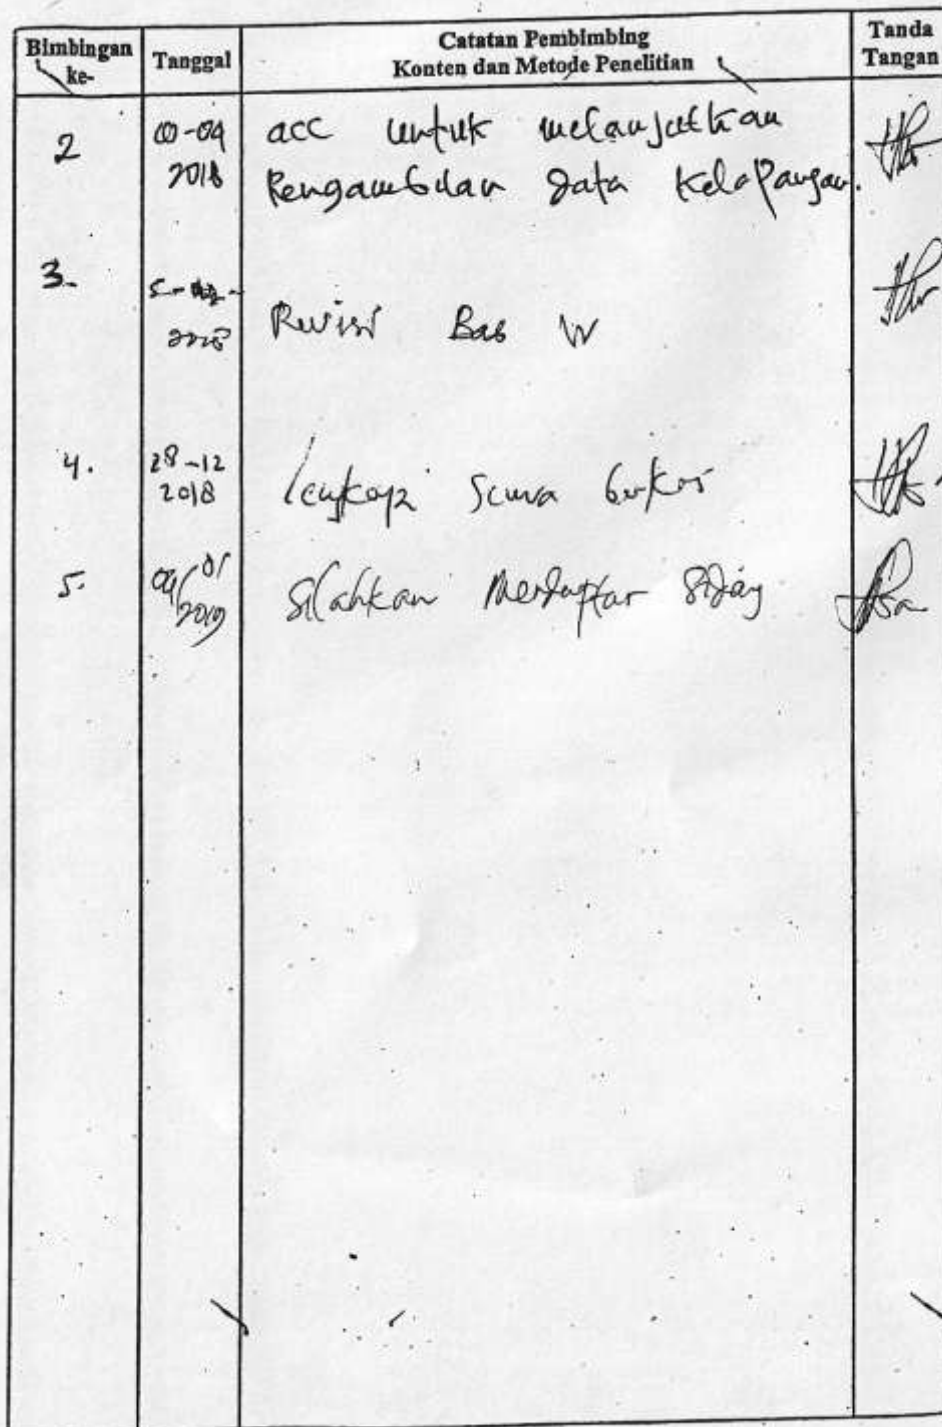 Bimbingan ke-
Tanggal
Catatan Pembimbing
Konten dan Metode Penelitian
Tanda Tangan
2
2018
acc untuk melanjutkan
Pengambilan data Kelapangan.
3.
Revisi Bab IV
4.
28-12
2018
lengkapi semua berkas
5.
04/01
2019
Silahkan Mendaftar Sidang